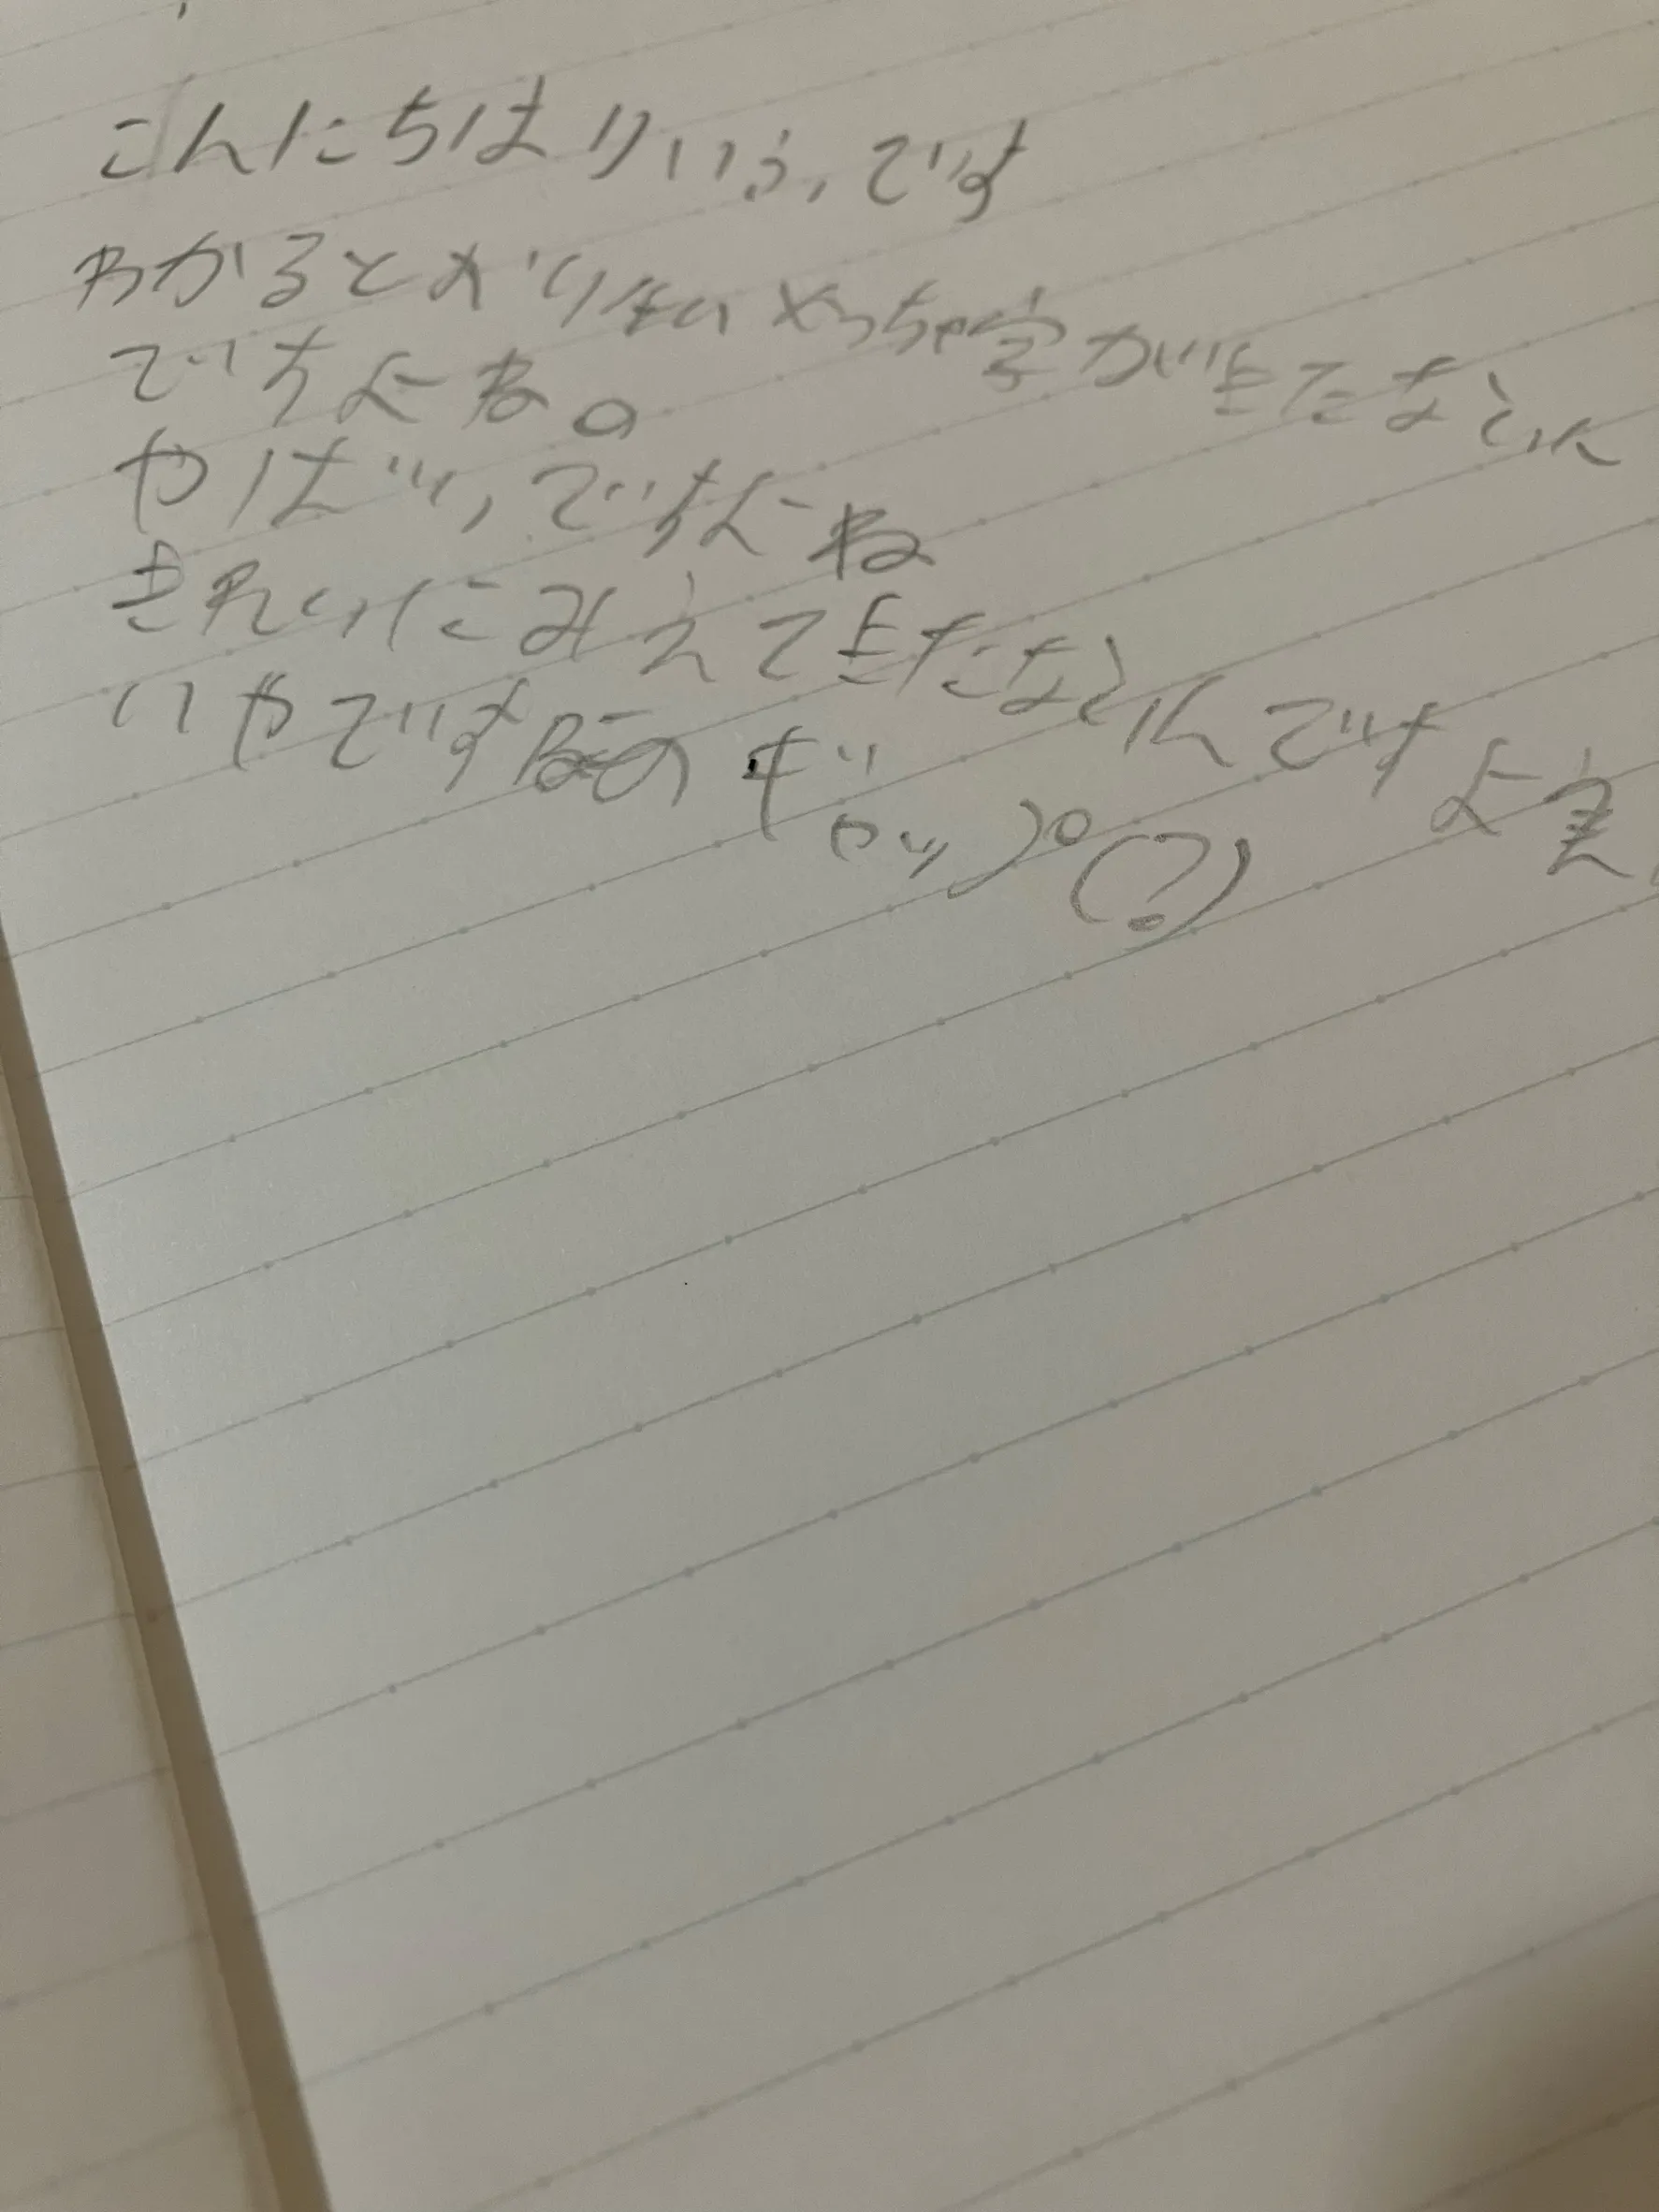 こんにちはりいふ、です
わかるとおりぼくめっちゃ字がきたないん
ですよね。
やばい、ですよね
きれいにみえてきたないんですよ
いやですねのギャップ(?)